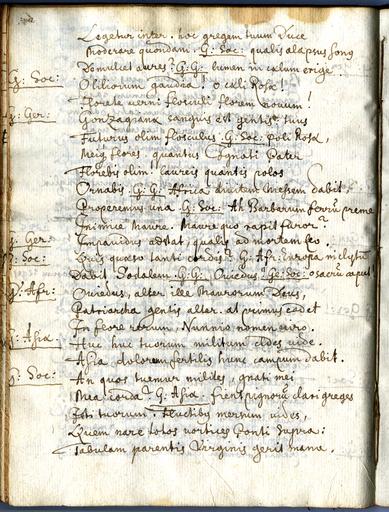 Legetur inter. hoc gregem tuum Duce
Moderare quondam. G: Soc: qualis alapsus sono
Demulcet aures? G: G: lumen in cælum erige.
G: Soc: O liliorum gaudia! o cæli Rosa!
Florete verni flosculi florem novum!
G: Ger: Gonzagiana sanguis est gentis tuus
Futurus olim flosculus. G: Soc: Poli Rosa,
Meis flores quantus Cognati Pater
Florebis olim! laureis quantis polos
Ornabis. G: G: Africa messem dabit,
Properemus una. G: Soc: Ah Barbarum ferrum preme
Inimice Maure. Maure quo rapit furor?
G: Ger: Impavidus adstat, qualis ad mortem leo.
G: Soc: Quis quæso tanti cordis? G: Afri: Europa inclytum
Dabit Sodalem. G: G: Oviedus? G: Soc: o sacrum caput
G: Afr: Oviedus, alter ille Maurorum Deus,
Patriarcha gentis alter. at primus cadet
In flore rerum, Nunnio nomen viro.
G: Asia Huc huc tuorum militum clades vide.
Asia dolorem fertilis hunc campum dabit.
G: Soc: An quos tuemur milites, gnati mei
Mea corda? G: Asia. Sient pignorum clari greges
Isti tuorum. Fluctibus mersum vides,
Quem nare totos vortices Ponti supra:
Tabulam parentis Virginis geris manu.